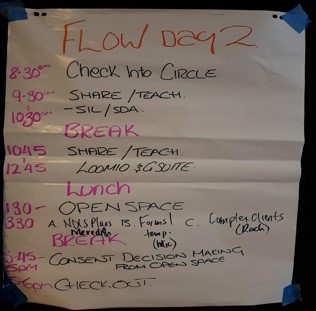 FLOW Day 2
8·30am Check Into CIRCLE
9·30am SHARE/TEACH.
1030am - SIL/SDA.
BREAK
1045 SHARE/TEACH
12·45 LOOMIO & GSUITE
Lunch
130- OPEN SPACE
330 A. NDIS Plans B. Forms/ C. Complex clients
Meredith temp. (Rach)
BREAK (Mic)
3·45- CONSENT DECISION MAKING
5pm FROM OPEN SPACE
CHECK OUT